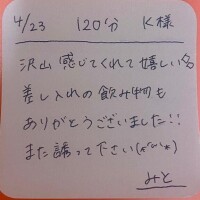 4/23 120分 K様
沢山感じてくれて嬉しい名
差し入れの飲み物も
ありがとうございました!!
また誘って下さい(*^^*)
みと